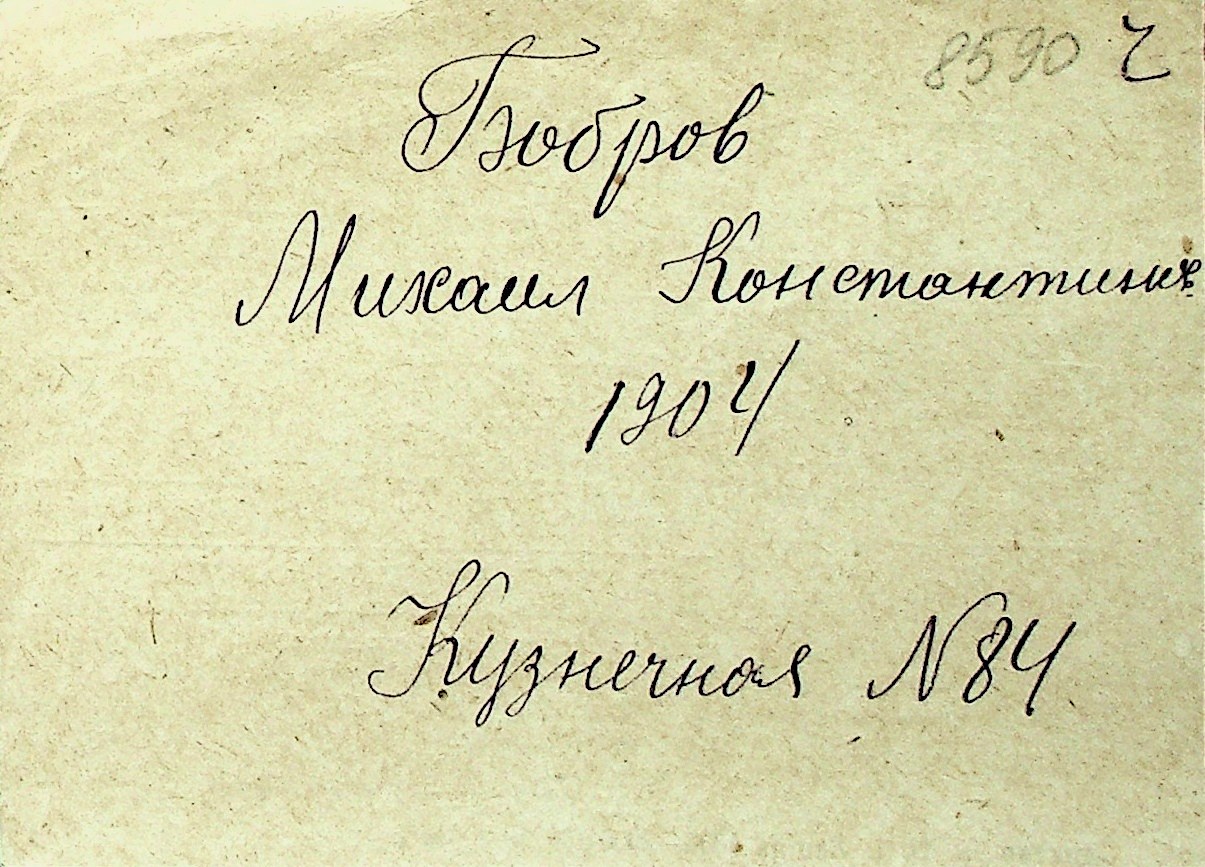 8590 ч
Бобров
Михаил Константинов.
1904
Кузнечная №84